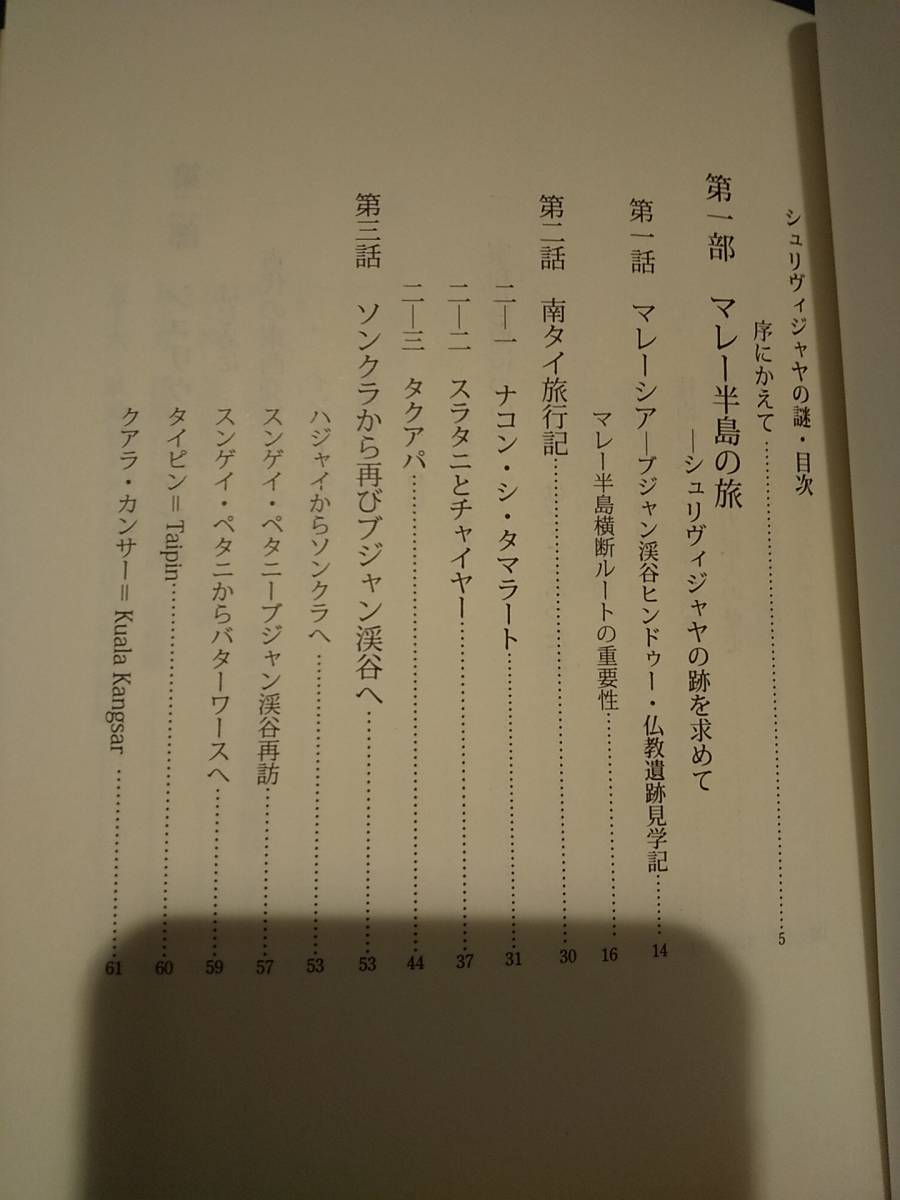 シュリヴィジャヤの謎・目次
序にかえて……………………………………5
第一部　マレー半島の旅
―シュリヴィジャヤの跡を求めて
第一話　マレーシア―ブジャン渓谷ヒンドゥー・仏教遺跡見学記……14
マレー半島横断ルートの重要性……………………16
第二話　南タイ旅行記……………………………………30
二―一　ナコン・シ・タマラート……………………………31
二―二　スラタニとチャイヤー……………………………37
二―三　タクアパ……………………………………44
第三話　ソンクラから再びブジャン渓谷へ……………………53
ハジャイからソンクラへ……………………………53
スンゲイ・ペタニーブジャン渓谷再訪……………………57
スンゲイ・ペタニからバターワースへ……………………59
タイピン＝Taipin……………………………………60
クアラ・カンサー＝Kuala Kangsar……………………61